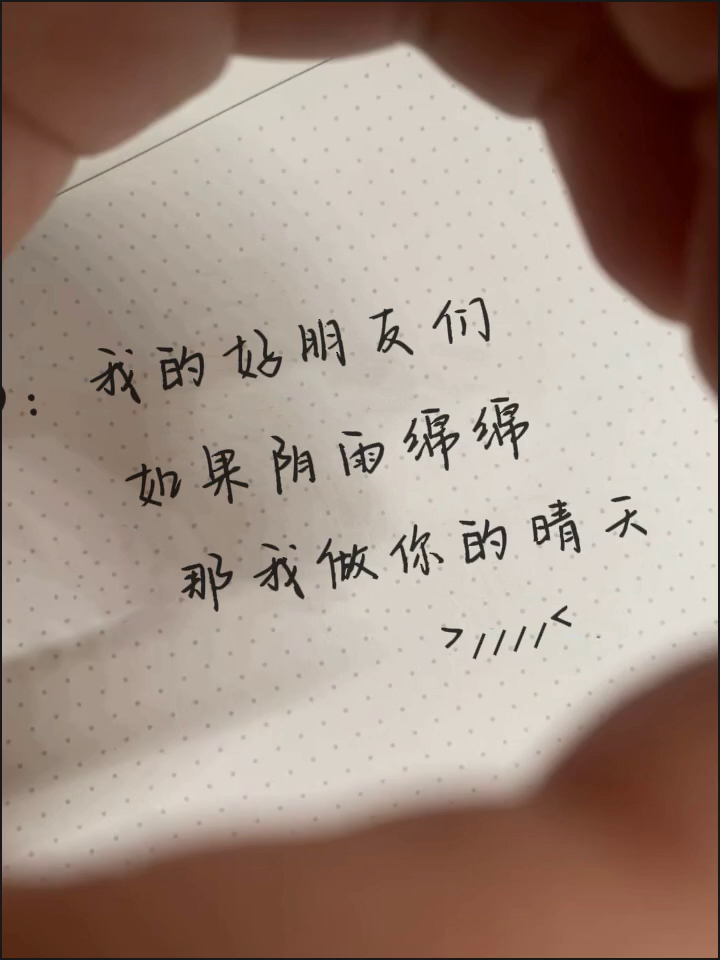 ：我的好朋友们
如果阴雨绵绵
那我做你的晴天
>////<